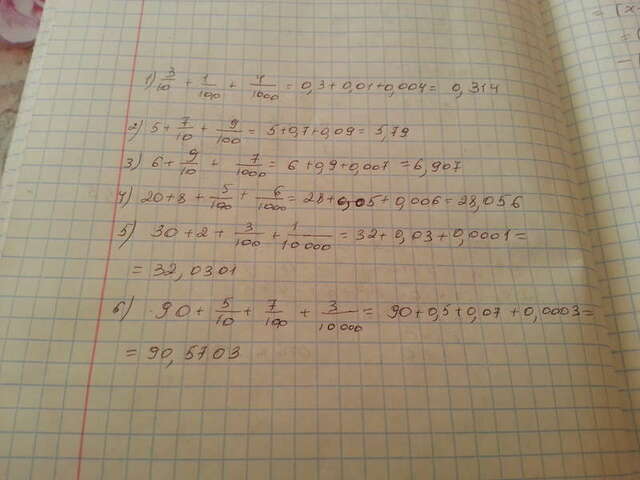 1) 3/10 + 1/100 + 4/1000 = 0,3 + 0,01 + 0,004 = 0,314
2) 5 + 7/10 + 9/100 = 5 + 0,7 + 0,09 = 5,79
3) 6 + 9/10 + 7/1000 = 6 + 0,9 + 0,007 = 6,907
4) 20 + 8 + 5/100 + 6/1000 = 28 + 0,05 + 0,006 = 28,056
5) 30 + 2 + 3/100 + 1/10000 = 32 + 0,03 + 0,0001 =
= 32,0301
6) 90 + 5/10 + 7/100 + 3/10000 = 90 + 0,5 + 0,07 + 0,0003 =
= 90,5703